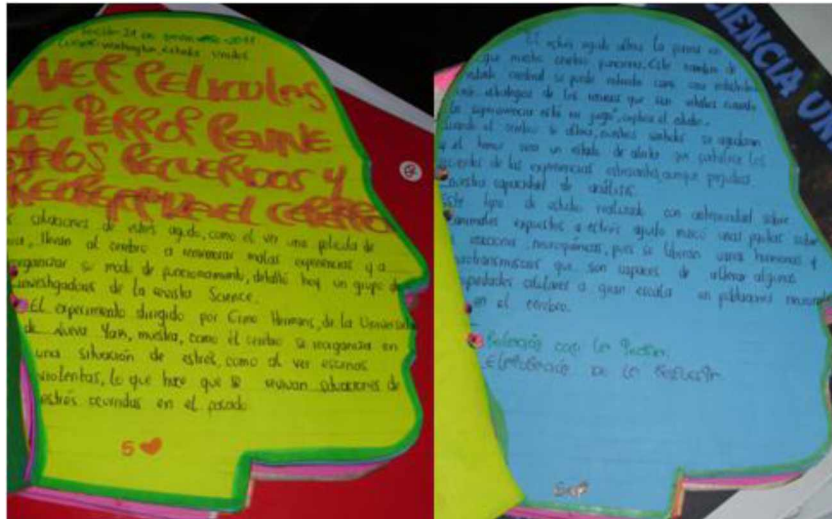 24 de 2011
Washington, Estados Unidos
VER PELICULAS
DE TERROR REVIVE
MALOS RECUERDOS Y
REORGANIZA EL CEREBRO
situaciones de estrés agudo, como el ver una película de
llevan al cerebro a rememorar malas experiencias y a
reorganizar su modo de funcionamiento, detalló hoy un grupo de
investigadores de la revista Science.
El experimento dirigido por Hermans, de la Universidad
de Nueva York, muestra, como el cerebro se reorganiza en
una situación de estrés, como al ver escenas
violentas, lo que hace que se revivan situaciones de
estrés ocurridas en el pasado.
5
El estrés agudo altera la forma en
que nuestro cerebro funciona. Este cambio de
estado cerebral se puede entender como una redistribución
estratégica de los recursos que son vitales cuando
la supervivencia está en juego, explica el estudio.
Cuando el cerebro se altera, nuestros sentidos se agudizan
y el temor crea un estado de alerta que fortalece los
recuerdos de las experiencias estresantes, aunque perjudica
nuestra capacidad de análisis.
Este tipo de estudio realizado con anterioridad sobre
animales expuestos a estrés agudo marcó unas pautas sobre
reacciones neuroquímicas, pues se liberan varias hormonas y
neurotransmisores que son capaces de alterar algunas
propiedades celulares a gran escala en poblaciones neuronales
en el cerebro.
Relación con la
de la
CIENCIA